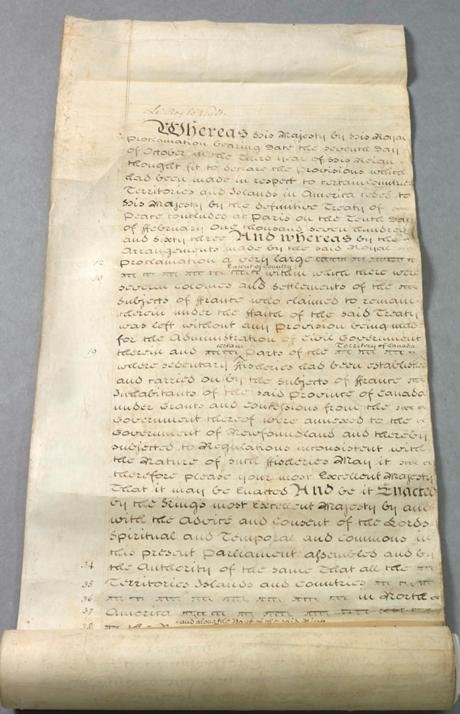 Whereas His Majesty by His Royal
Proclamation bearing Date the seventh Day
of October in the Third Year of His Reign
thought fit to declare the Provisions which
had been made in respect to certain Countries
Territories and Islands in America ceded to
His Majesty by the definitive Treaty of
Peace concluded at Paris on the Tenth Day
of ffebruary One thousand seven hundred
and sixty three And whereas by the
Arrangements made by the said Royal
Proclamation a very large
Extent of Country
within which there were
several Colonies and Settlements of the
Subjects of ffrance who claimed to remain
therein under the ffaith of the said Treaty
was left without any Provision being made
for the Administration of Civil Government
certain Territory of Canada
19 therein and Parts of the
where sedentary ffisheries had been established
and carried on by the Subjects of ffrance
Inhabitants of the said Province of Canada
under Grants and Concessions from the
Government thereof were annexed to the
Government of Newfoundland and thereby
subjected to Regulations inconsistent with
the Nature of such ffisheries May it
therefore please your most Excellent Majesty
That it may be Enacted And be it Enacted
by the Kings most Excellent Majesty by and
with the Advice and Consent of the Lords
Spiritual and Temporal and Commons in
this present Parliament assembled and by
34 the Authority of the same That all the
35 Territories Islands and Countries
36 in North
37 America
38